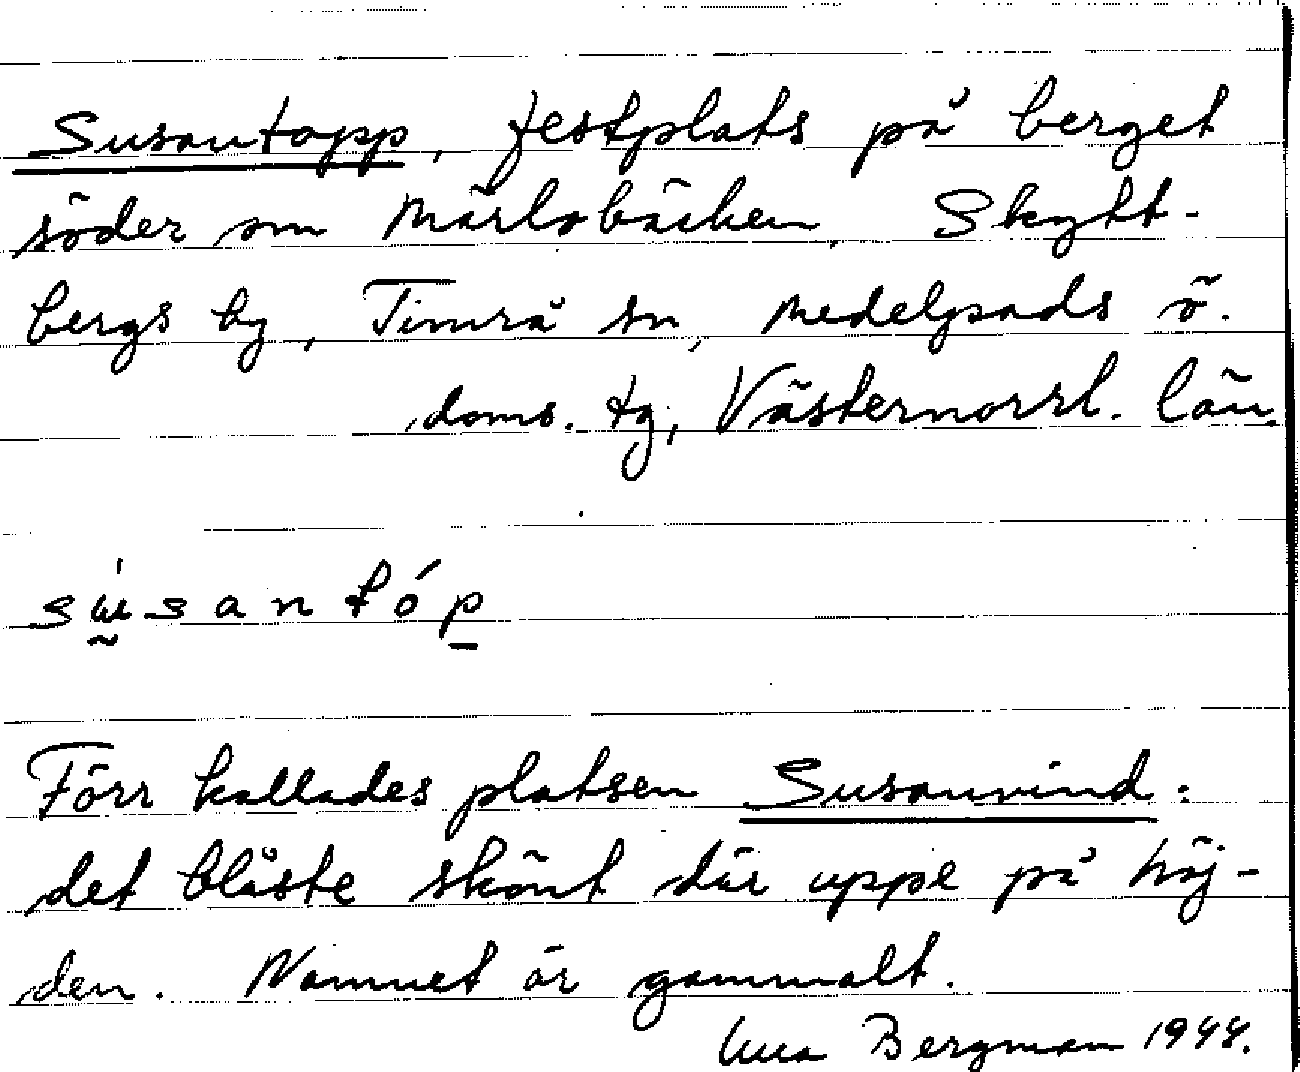 Susantopp, festplats på berget
söder om Märlobäcken, Skytt-
bergs by, Timrå sn, Medelpads ö.
doms. tg, Västernorrl. län.
súsantóp
Förr kallades platsen Susanvind:
det blåste skönt där uppe på höj-
den. Namnet är gammalt.
Bergman 1944.